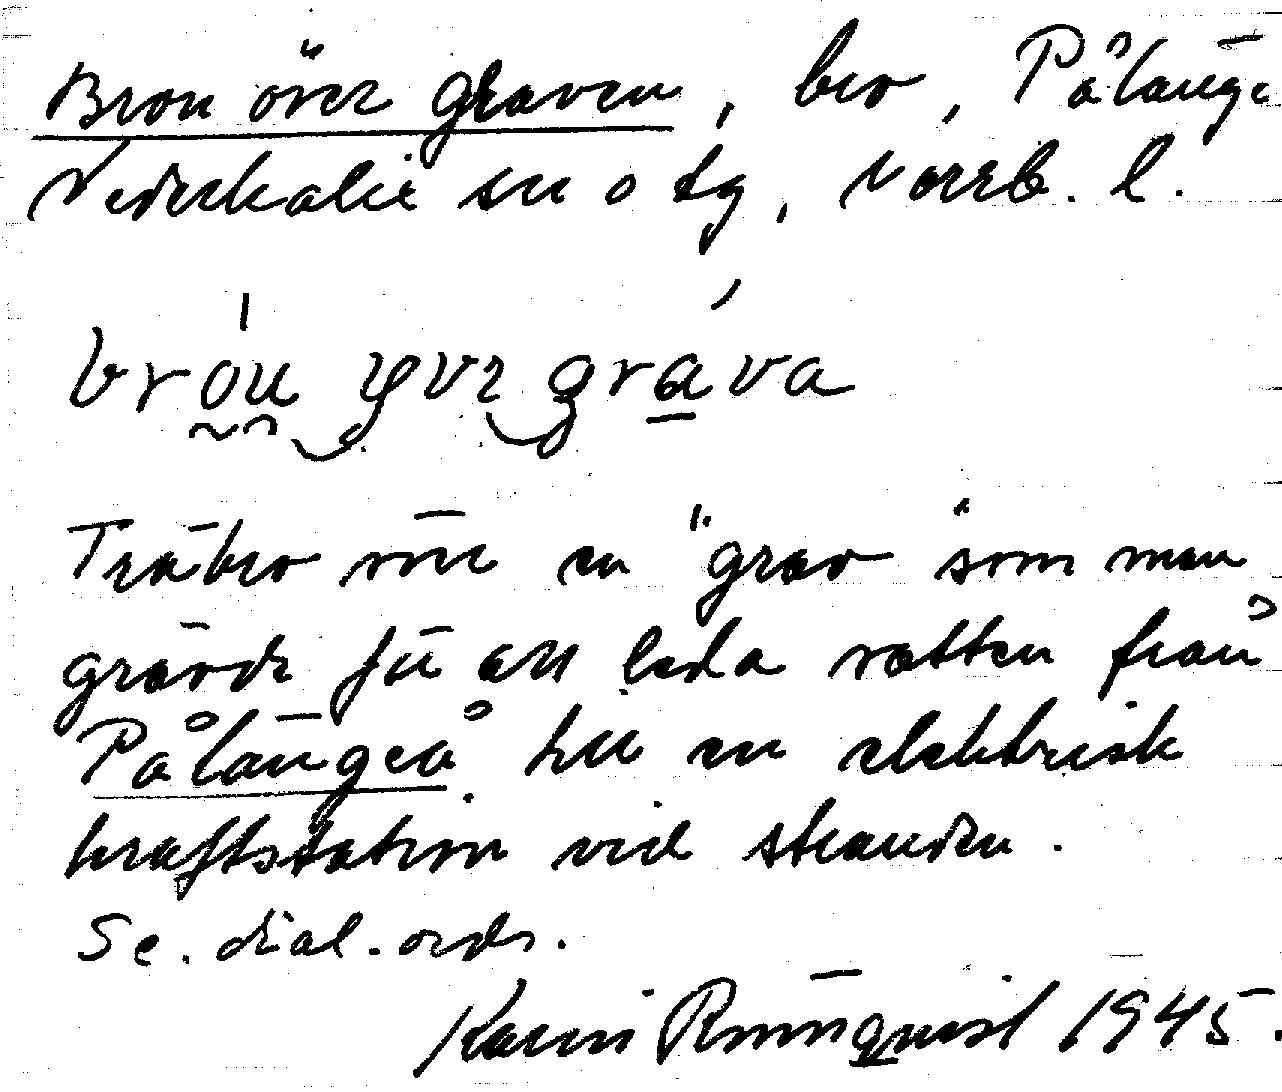 Bron över graven, bro, Pålänge
Nederkalix sn o tg, Norrb. l.
bròu yvr grava
Träbro över en "grav" som man
grävde för att leda vatten från
Pålängeå till en elektrisk
kraftstation vid stranden.
Se. dial. ordr.
Karin Rönnquist 1945.